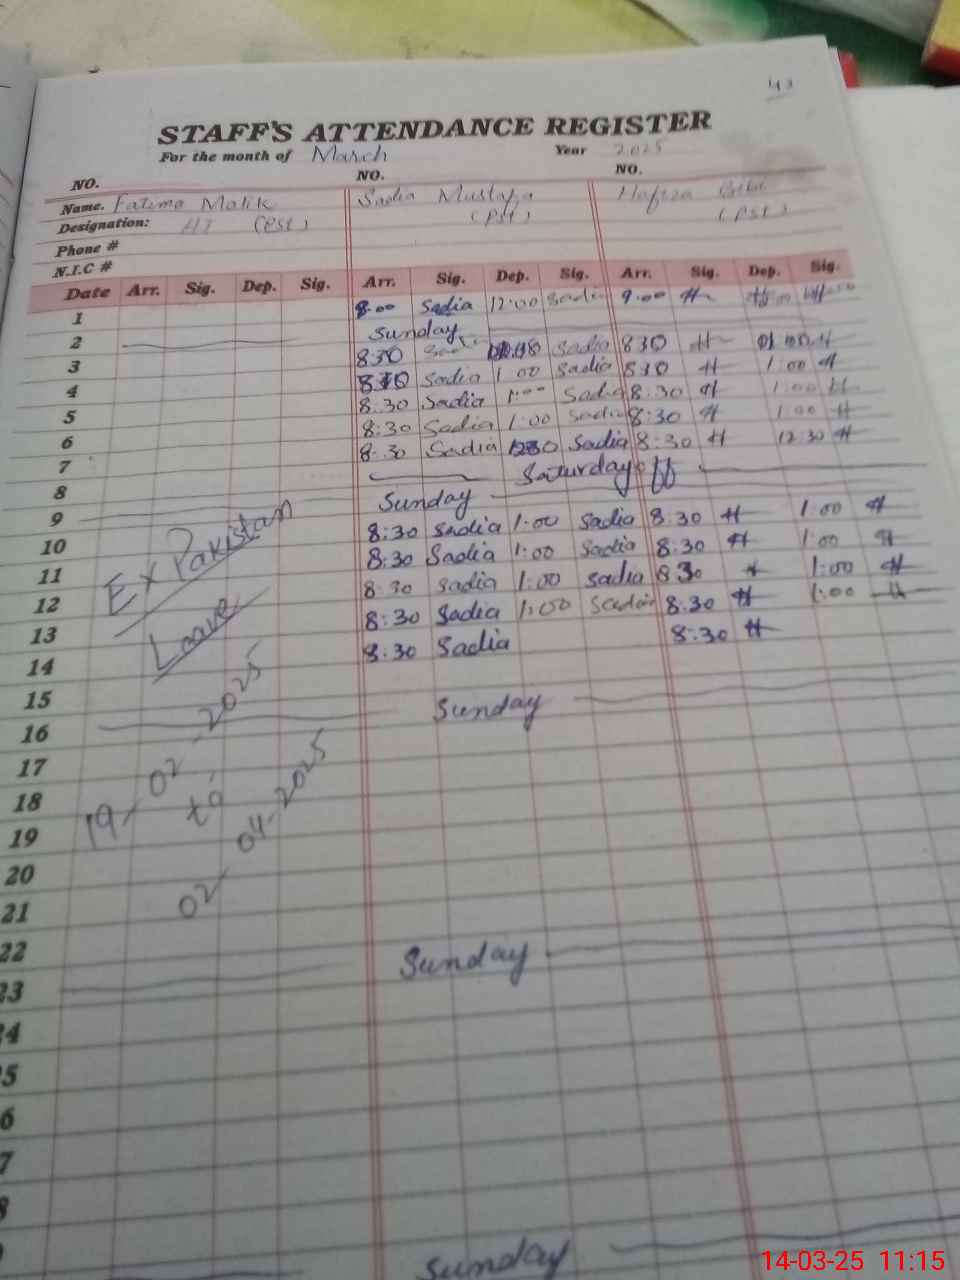 43
STAFF'S ATTENDANCE REGISTER
For the month of March Year 2025
NO. NO. NO.
Name. Fatima Malik Sadia Mustafa Hafiza Bibi
Designation: HT (PST) (PST) (PST)
Phone #
N.I.C #
Date Arr. Sig. Dep. Sig. Arr. Sig. Dep. Sig. Arr. Sig. Dep. Sig.
1 8:00 Sadia 12:00 Sadia 9:00 H
2 Sunday
3 8:30 Sadia 8:30 H
4 8:30 Sadia 1:00 Sadia 8:30 H 1:00 H
5 8:30 Sadia 1:00 Sadia 8:30 H 1:00 H
6 8:30 Sadia 1:00 Sadia 8:30 H 1:00 H
7 8:30 Sadia 1230 Sadia 8:30 H 12:30 H
8 Saturday off
9 Sunday
10 8:30 Sadia 1:00 Sadia 8:30 H 1:00 H
11 8:30 Sadia 1:00 Sadia 8:30 H 1:00 H
12 8:30 Sadia 1:00 Sadia 8:30 H 1:00 H
13 8:30 Sadia 1:00 Sadia 8:30 H 1:00 H
14 8:30 Sadia 8:30 H
Ex Pakistan
Leave
19-02-2025
to
02-04-2025
15
16 Sunday
17
18
19
20
21
22
23 Sunday
24
5
6
7
8
Sunday
14-03-25 11:15